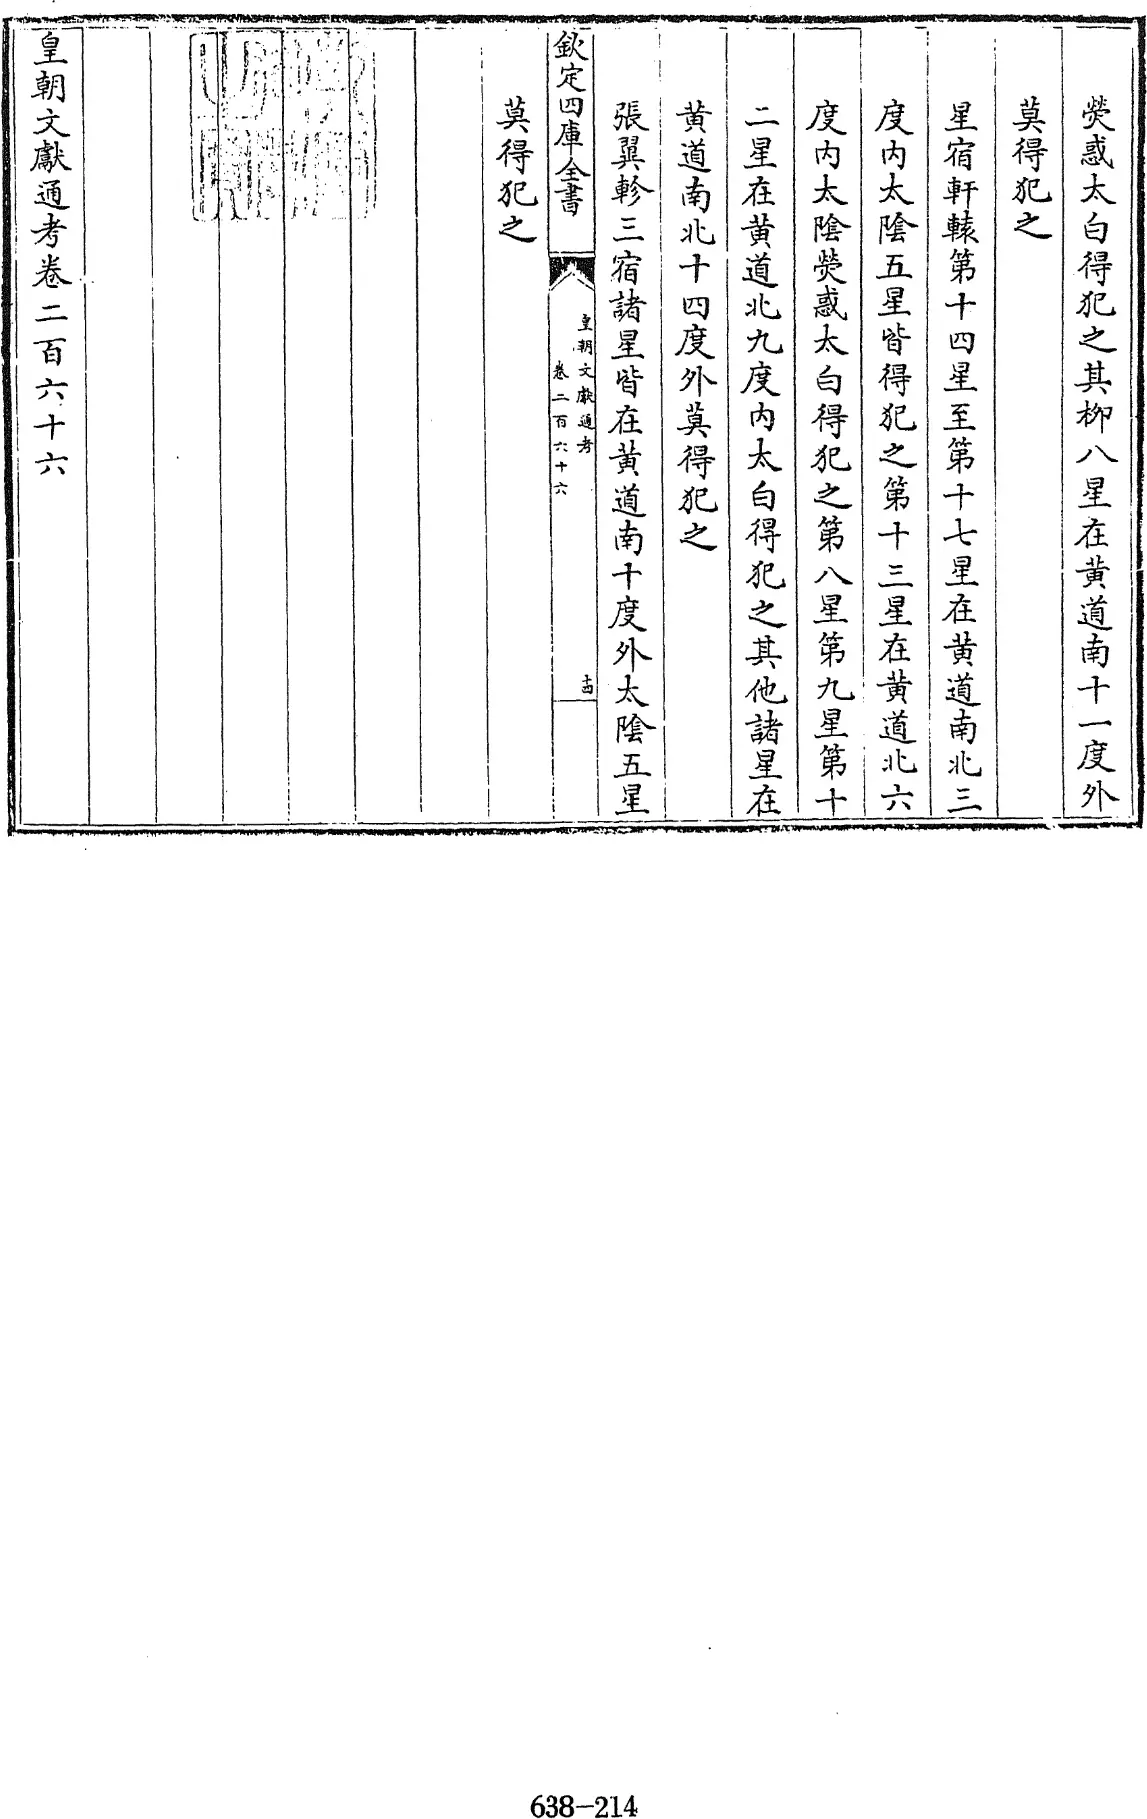 熒惑太白得犯之其柳八星在黄道南十一度外
莫得犯之
星宿軒轅第十四星至第十七星在黄道南北三
度内太陰五星皆得犯之第十三星在黄道北六
度内太陰熒惑太白得犯之第八星第九星第十
二星在黄道北九度内太白得犯之其他諸星在
黄道南北十四度外莫得犯之
張翼軫三宿諸星皆在黄道南十度外太陰五星
欽定四庫全書
皇朝文獻通考
卷二百六十六
十四
莫得犯之
皇朝文獻通考卷二百六十六
638-214